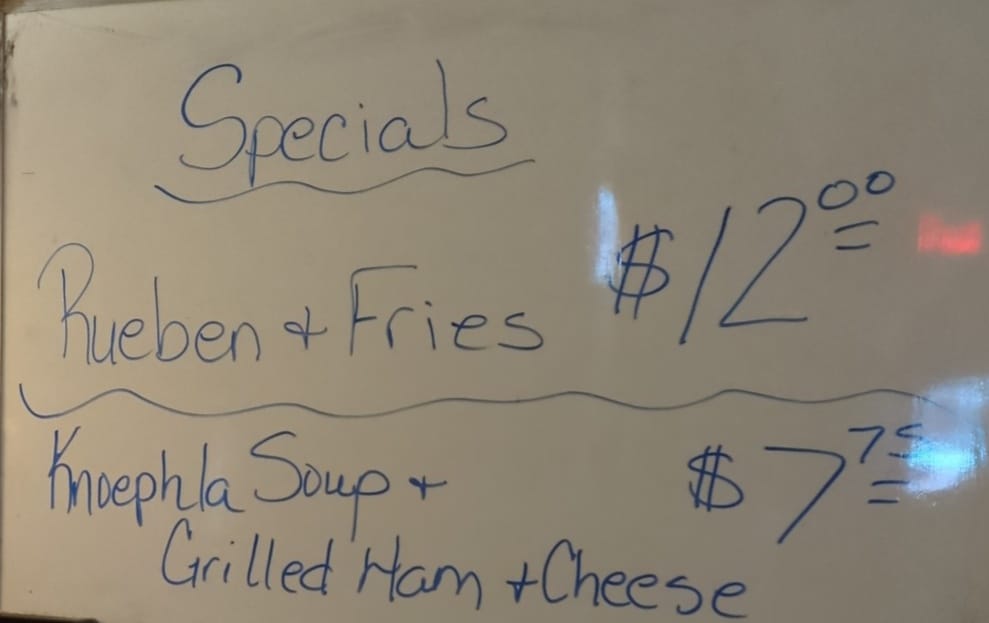 Specials
Rueben + Fries $12.00
Knoephla Soup + $7.75
Grilled Ham + Cheese